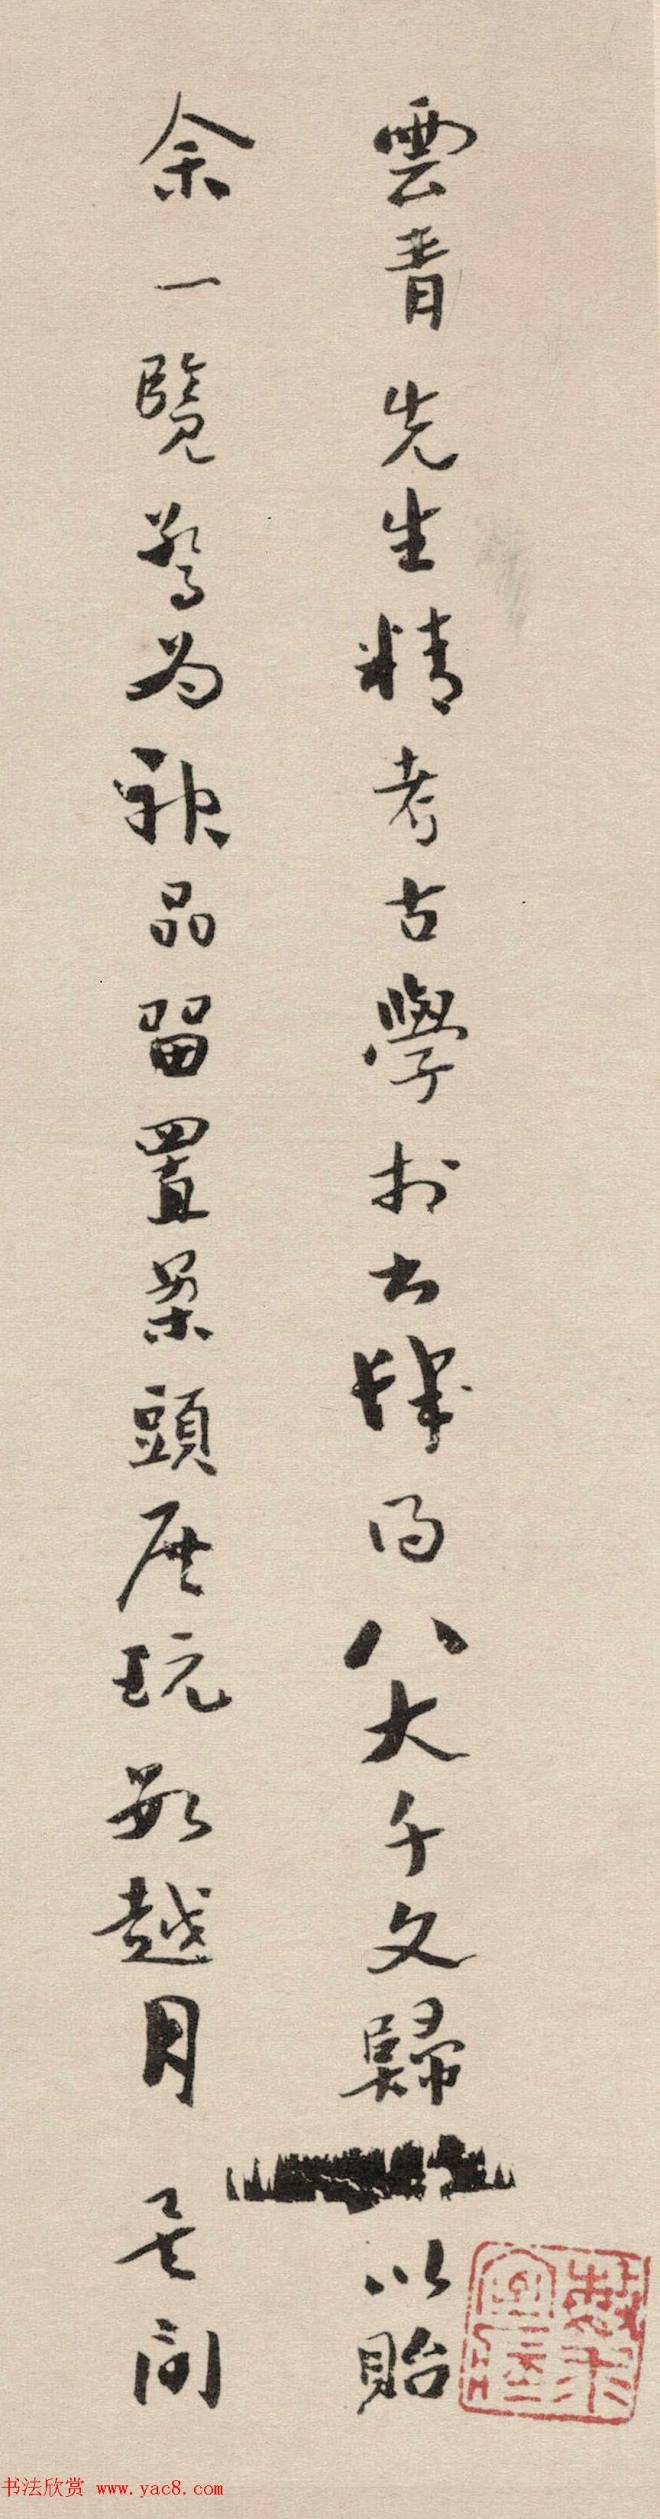 雲青先生精考古學於書肆得八大千文歸以貽
余一覽驚為神品留置案頭展玩數越月其間
书法欣赏 www.yac8.com